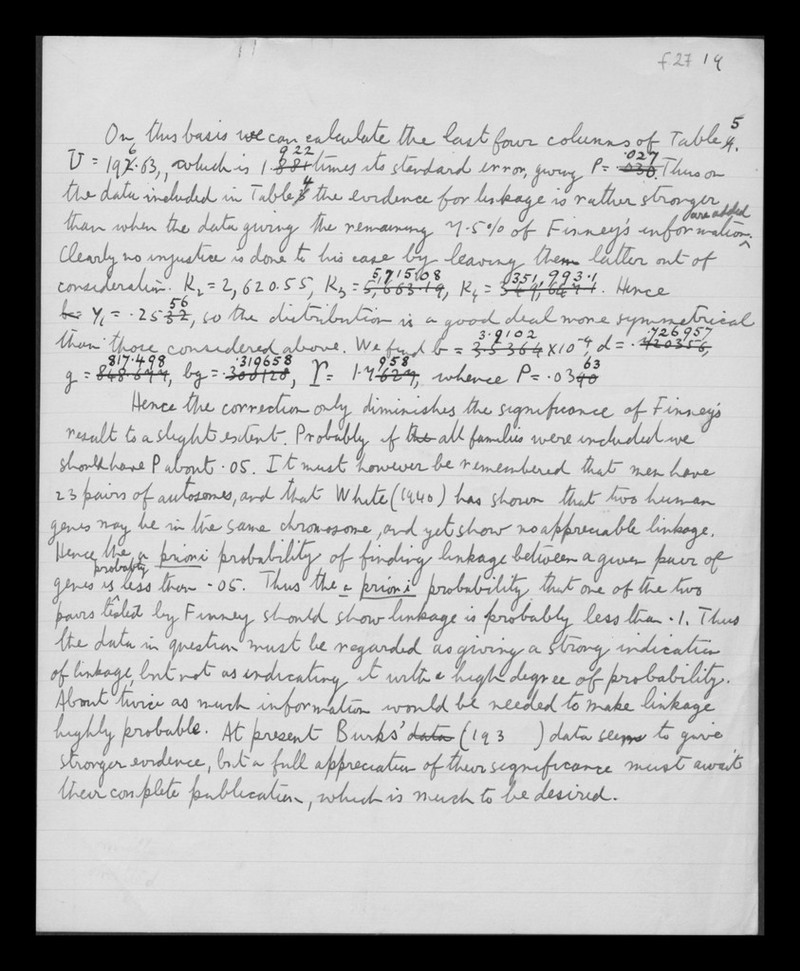 f27 19
On this basis we can calculate the last four columns of Table 5.
U = 196.63, which is 1.922 times its standard error, giving P = .027. Thus on
the data included in Table 4 the evidence for linkage is rather stronger
than when the data giving the remaining 7.5% of Finney's information are added.
Clearly no injustice is done to his case by leaving them latter out of
consideration. K2 = 2,620.55, K3 = 5,715.08, K4 = 351,993.1. Hence
γ1 = .2556, so the distribution is a good deal more symmetrical
than those considered above. We find b = 3.9102 × 10-4, d = .726957,
g = 817.498, bg = .319658, Υ = 1.7958, whence P = .0363
Hence the correction only diminishes the significance of Finney's
result to a slight extent. Probably if all families were included we
should have P about .05. It must however be remembered that men have
23 pairs of autosomes, and that White (1940) has shown that two human
genes may be in the same chromosome, and yet show no appreciable linkage.
Hence the a priori probability of finding linkage between a given pair of
genes is probably less than .05. Thus the a priori probability that one of the two
pairs tested by Finney should show linkage is probably less than .1. Thus
the data in question must be regarded as giving a strong indication
of linkage, but not as indicating it with a high degree of probability.
About twice as much information would be needed to make linkage
highly probable. At present Burks' data (193 ) data seem to give
stronger evidence, but a full appreciation of their significance must await
their complete publication, which is much to be desired.